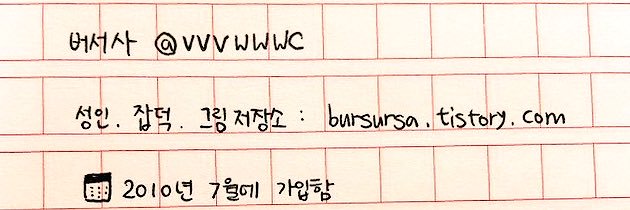 버서사 @VVVWWWC
성인. 잡덕. 그림저장소 : bursursa.tistory.com
2010년 7월에 가입함